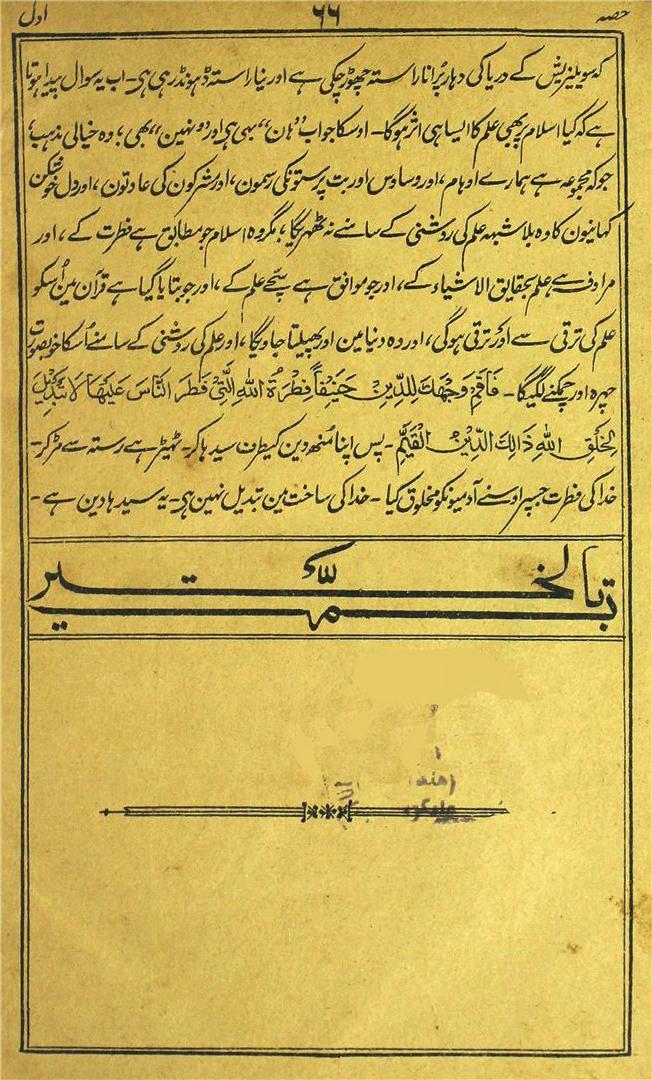 حصہ ۶۶ اول
کہ سویلیزیشن کے دریا کی دہار پُرانا راستہ چھوڑ چکی ہے اور نیا راستہ ڈہونڈ رہی ہی۔ اب یہ سوال پیدا ہوتا
ہے کہ کیا اسلام پر بھی علم کا ایسا ہی اثر ہوگا۔ اوسکا جواب ”ہان“ بہی ہی اور ”نہین“ بھی؛ وہ خیالی مذہب،
جو کہ مجموعہ ہے ہمارے اوہام، اور وساوس اور بت پرستونکی رسمون، اور مشرکون کی عادتون، اور دل خوشکن
کہانیون کا وہ بلا شبہہ علم کی روشنی کے سامنے نہ ٹھہریگا؛ مگر وہ اسلام جو مطابق ہے فطرت کے، اور
مرادف ہے علم بحقایق الاشیاء کے، اور جو موافق ہے سچّے علم کے، اور جو بتایا گیا ہے قرآن مین اُسکو
علم کی ترقی سے اَور ترقی ہوگی، اور وہ دنیا مین اور پھیلتا جاویگا، اور علم کی روشنی کے سامنے اُسکا خوبصورت
چہرہ اور چمکنے لگیگا۔ فَاَقِمْ وَجْهَكَ لِلدِّيْنِ حَنِيْفًا فِطْرَةَ اللهِ الَّتِيْ فَطَرَ النَّاسَ عَلَيْهَا لَا تَبْدِيْلَ
لِخَلْقِ اللهِ ذَالِكَ الدِّيْنُ الْقَيِّمُ۔ پس اپنا مُنھ دین کیطرف سیدہا کر۔ ٹھیڑہے رستہ سے مڑ کر۔
خدا کی فطرت جسپر اوسنے آدمیونکو مخلوق کیا۔ خدا کی ساخت مین تبدیل نہین ہی۔ یہ سیدہا دین ہے۔
تمّ بالخیر